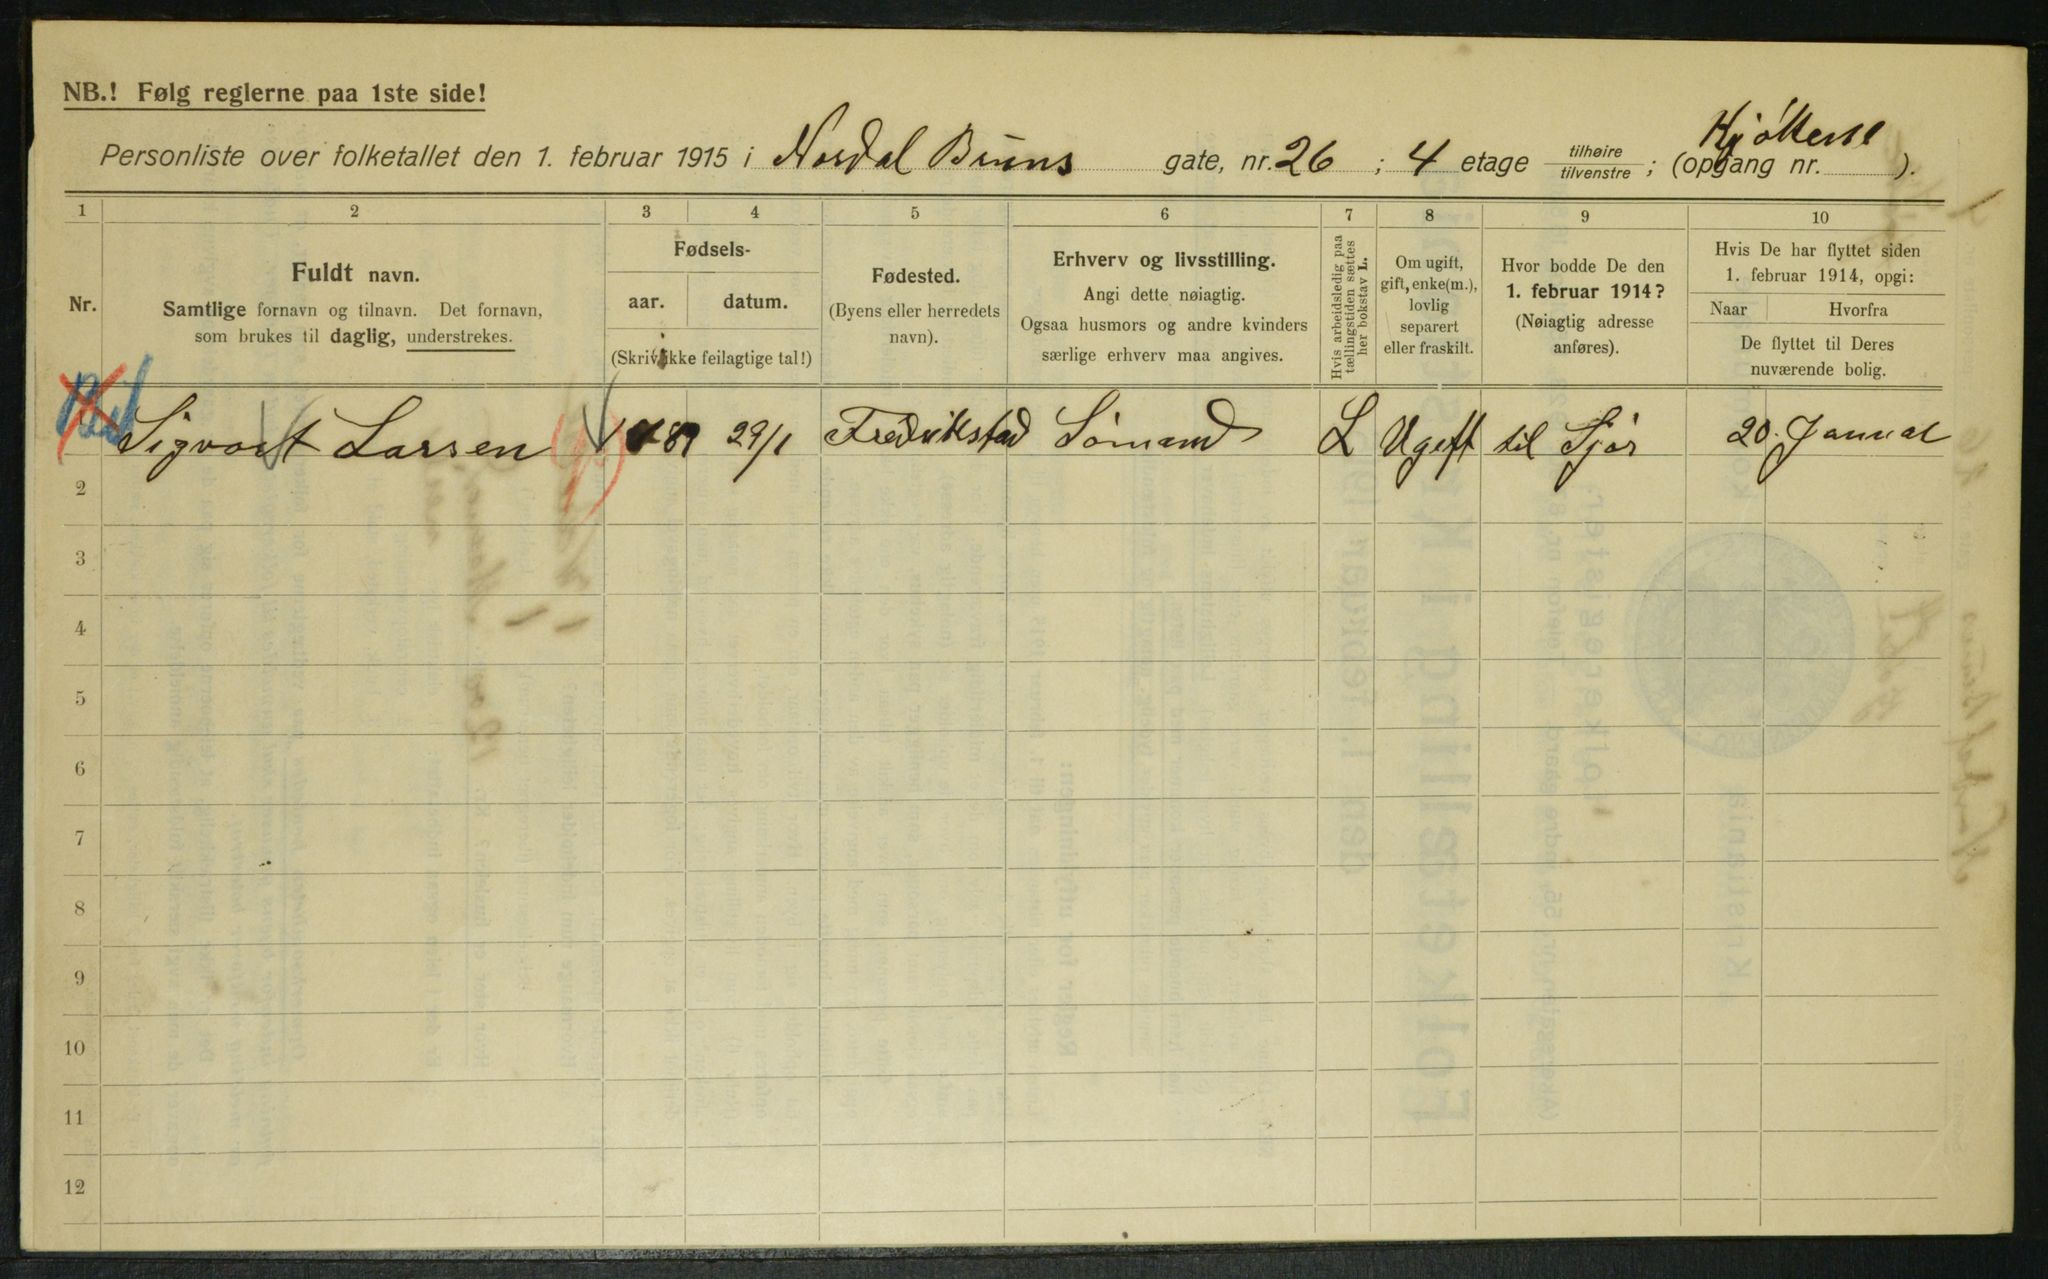 NB.! Følg reglerne paa 1ste side!
Personliste over folketallet den 1. februar 1915 i Nordal Bruns gate, nr. 26 ; 4 etage tilhøire tilvenstre ; (opgang nr. ).
1 2 3 4 5 6 7 8 9 10
Nr.
Fuldt navn.
Samtlige fornavn og tilnavn. Det fornavn,
som brukes til daglig, understrekes.
Fødsels-
aar. datum.
(Skriv ikke feilagtige tal!)
Fødested.
(Byens eller herredets
navn).
Erhverv og livsstilling.
Angi dette nøiagtig.
Ogsaa husmors og andre kvinders
særlige erhverv maa angives.
Hvis arbeidsledig paa
tællingstiden sættes
her bokstav L.
Om ugift,
gift, enke(m.),
lovlig
separert
eller fraskilt.
Hvor bodde De den
1. februar 1914?
(Nøiagtig adresse
anføres).
Hvis De har flyttet siden
1. februar 1914, opgi:
Naar Hvorfra
De flyttet til Deres
nuværende bolig.
Sigvart Larsen 89 29/1 Fredrikstad Sömand L Ugift til Sjös 20. Januar
2
3
4
5
6
7
8
9
10
11
12